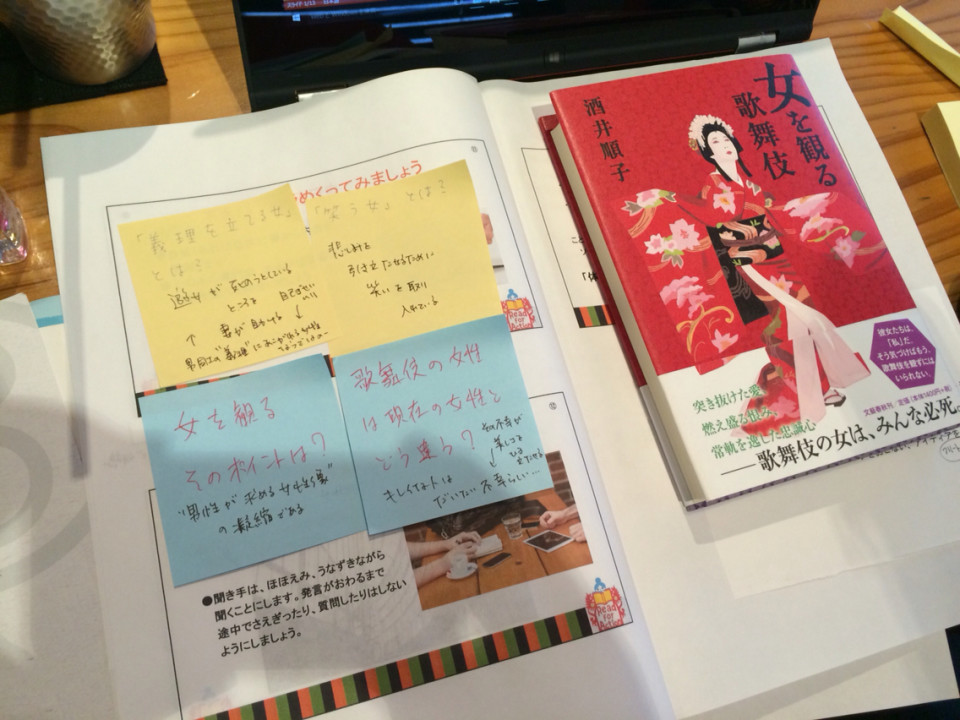 スライド 1/13
めくってみましょう
「義理を立てる女」
とは?
遊女が 死のうとしている
ところを
妻が 助ける
「笑う女」とは?
悲しみを
引き立たせるために
笑いを取り
入れている
女を観る
そのポイントは?
"男性が求める女性像"
の凝縮である
歌舞伎の女性
は現在の女性と
どう違う?
その不幸が
美しさを
ひき立たせる
キレイな人は
だいたい不幸らしい…
●聞き手は、ほほえみ、うなずきながら
聞くことにします。発言がおわるまで
途中でさえぎったり、質問したりはしない
ようにしましょう。
Read
for
Action
Read
for
Action
女を観る
歌舞伎
酒井順子
彼女たちは、
「私」だ。
そう気づけばもう、
歌舞伎を観ずには
いられない。
突き抜けた愛、
燃え盛る恨み、
常軌を逸した忠誠心
文藝春秋刊
──歌舞伎の女は、みんな必死。